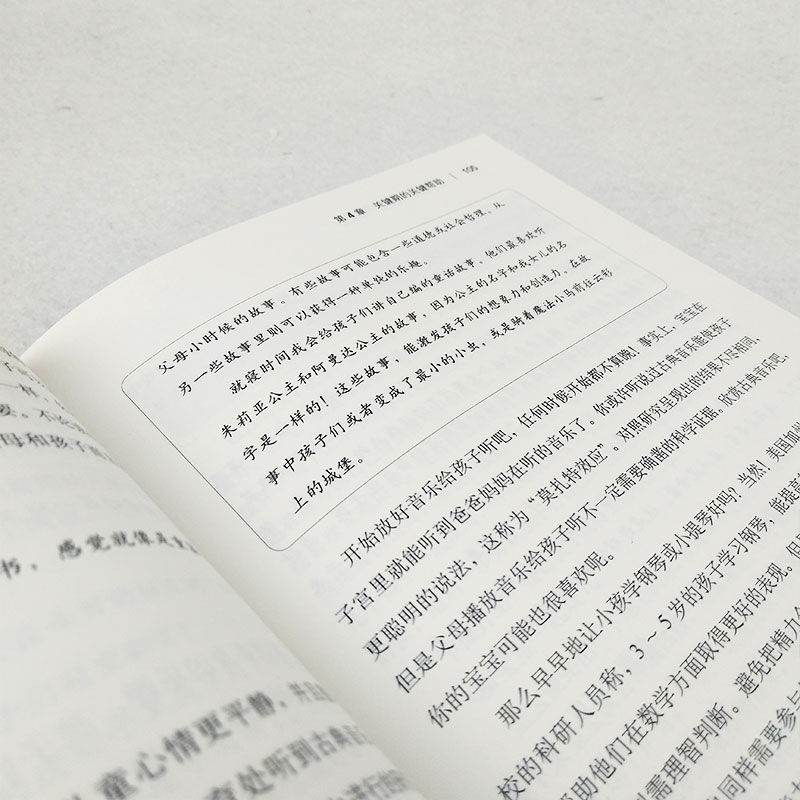 一样，
要。不论
母和孩子
书，感觉就像是
童心情更平静，
查处听到古典音
第4章 关键期的关键帮助 | 105
父母小时候的故事。有些故事可能包含一些道德或社会哲理。从
另一些故事里则可以获得一种单纯的乐趣。
就寝时间我会给孩子们讲自己编的童话故事，他们最喜欢听
朱莉亚公主和阿曼达公主的故事，因为公主的名字和我女儿的名
字是一样的！这些故事，能激发孩子们的想象力和创造力。在故
事中孩子们或者变成了最小的小虫，或是骑着魔法小马前往云彩
上的城堡。
开始放好音乐给孩子听吧，任何时候开始都不算晚！事实上，宝宝在
子宫里就能听到爸爸妈妈在听的音乐了。你或许听说过古典音乐能使孩子
更聪明的说法，这称为“莫扎特效应”。对照研究呈现出的结果不尽相同，
但是父母播放音乐给孩子听不一定需要确凿的科学证据。欣赏古典音乐吧，
你的宝宝可能也很喜欢呢。
那么早早地让小孩学钢琴或小提琴好吗？当然！美国加州
校的科研人员称，3～5岁的孩子学习钢琴，能提高
帮助他们在数学方面取得更好的表现。但
需理智判断。避免把精力全
同样需要参与